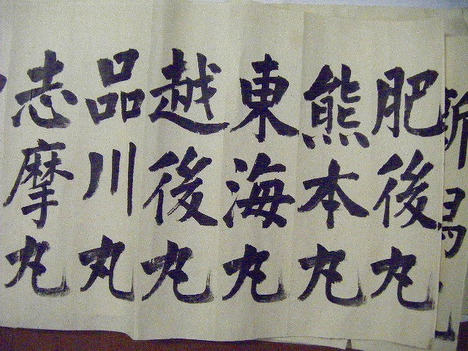 新潟丸
肥後丸
熊本丸
東海丸
越後丸
品川丸
志摩丸